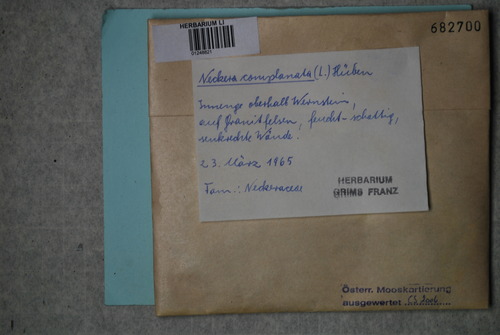 HERBARIUM LI
682700
Neckera complanata (L.) Hüben
Innenge oberhalb Wernstein,
auf Granitfelsen, feucht-schattig,
senkrechte Wände.
23. März 1965
Fam.: Neckeraceae
HERBARIUM
GRIMS FRANZ
Österr. Mooskartierung
ausgewertet